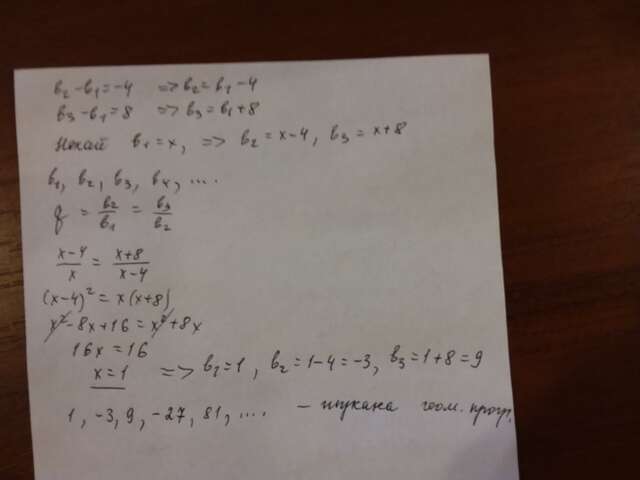 b₂ - b₁ = -4 => b₂ = b₁ - 4
b₃ - b₁ = 8 => b₃ = b₁ + 8
Нехай b₁ = x, => b₂ = x-4, b₃ = x+8
b₁, b₂, b₃, b₄, ....
q = b₂/b₁ = b₃/b₂
(x-4)/x = (x+8)/(x-4)
(x-4)² = x(x+8)
x² - 8x + 16 = x² + 8x
16x = 16
x = 1 => b₁ = 1, b₂ = 1-4 = -3, b₃ = 1+8 = 9
1, -3, 9, -27, 81, .... - шукана геом. прогр.